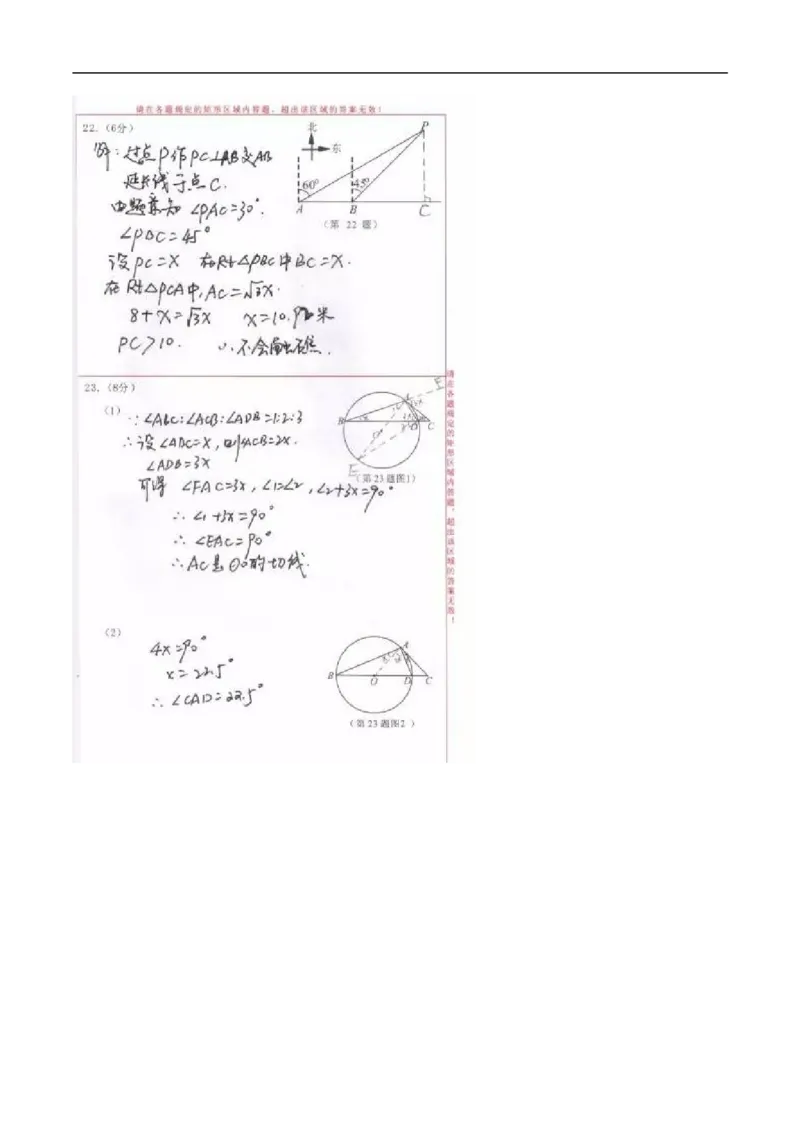 请在各题规定的矩形区域内答题，超出该区域的答案无效！
22.（6分）
解：过点P作PC⊥AB交AB
延长线于点C.
由题意知 ∠PAC=30°.
∠PBC=45°
设PC=X 在Rt△PBC中BC=X.
在Rt△PCA中,AC=√3X.
8+X=√3X X=10.92米
PC>10. ∴不会触礁.
北
东
P
60°
45°
A B C
（第 22 题）
23.（8分）
（1）
∵∠ABC:∠ACB:∠ADB=1:2:3
∴设∠ABC=X,则∠ACB=2X.
∠ADB=3X
可得 ∠FAC=3X,∠1=∠2,∠2+3X=90°
∴∠1+3X=90°
∴∠EAC=90°
∴AC是⊙O的切线.
B C
E
（第23题图1）
（2）
4X=90°
X=22.5°
∴∠CAD=22.5°
A
B O D C
（第23题图2 ）
请在各题规定的矩形区域内答题，超出该区域的答案无效！